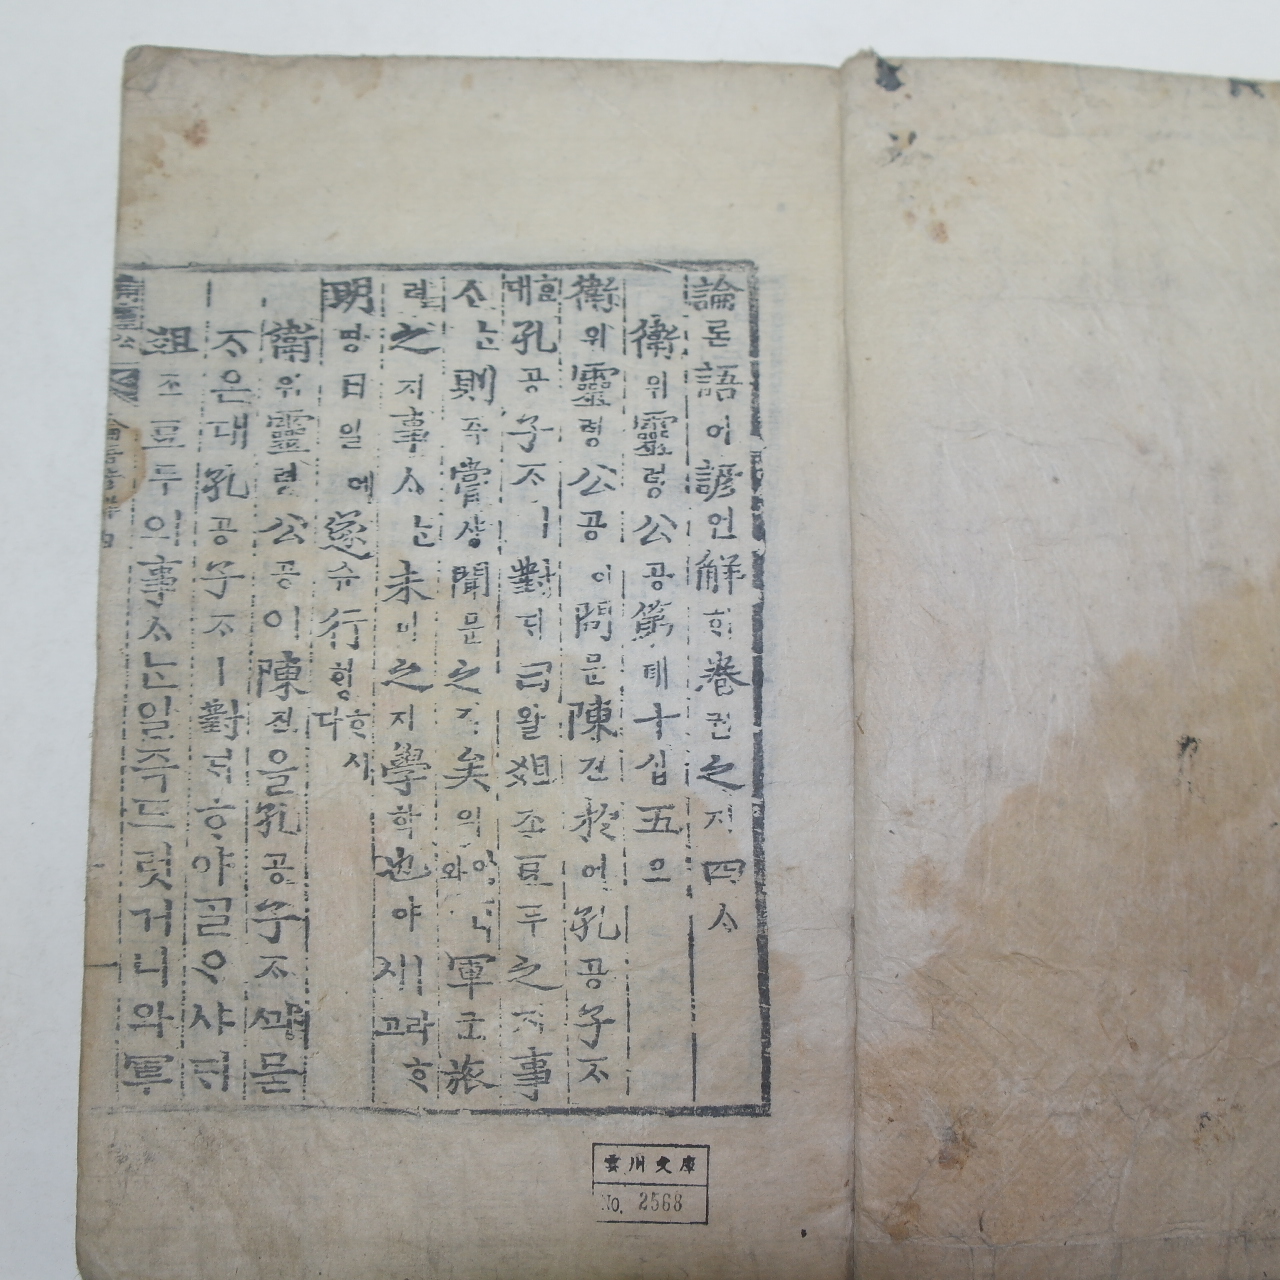 論론語어諺언解ᄒᆡ卷권之지四ᄉᆞ
衛위靈령公공第뎨十십五오
衛위靈령公공이問문陳딘於어孔공子ᄌᆞ
ᄒᆞᆫ대孔공子ᄌᆞㅣ對ᄃᆡ曰왈俎조豆두之지事
ᄉᆞᄂᆞᆫ則즉嘗샹聞문之지矣의어니와軍군旅
려之지事ᄉᆞᄂᆞᆫ未미之지學ᄒᆞᆨ也야ㅣ라ᄒᆞ시고
明명日일에遂슈行ᄒᆡᆼᄒᆞ시다
衛위靈령公공이陳딘을孔공子ᄌᆞᄭᅴ묻
ᄌᆞ온대孔공子ᄌᆞㅣ對ᄃᆡᄒᆞ야ᄀᆞᆯᄋᆞ샤ᄃᆡ
俎조豆두의事ᄉᆞᄂᆞᆫ일즉드럿거니와軍
衛靈公
論語諺解四
雲川文庫
No. 2568